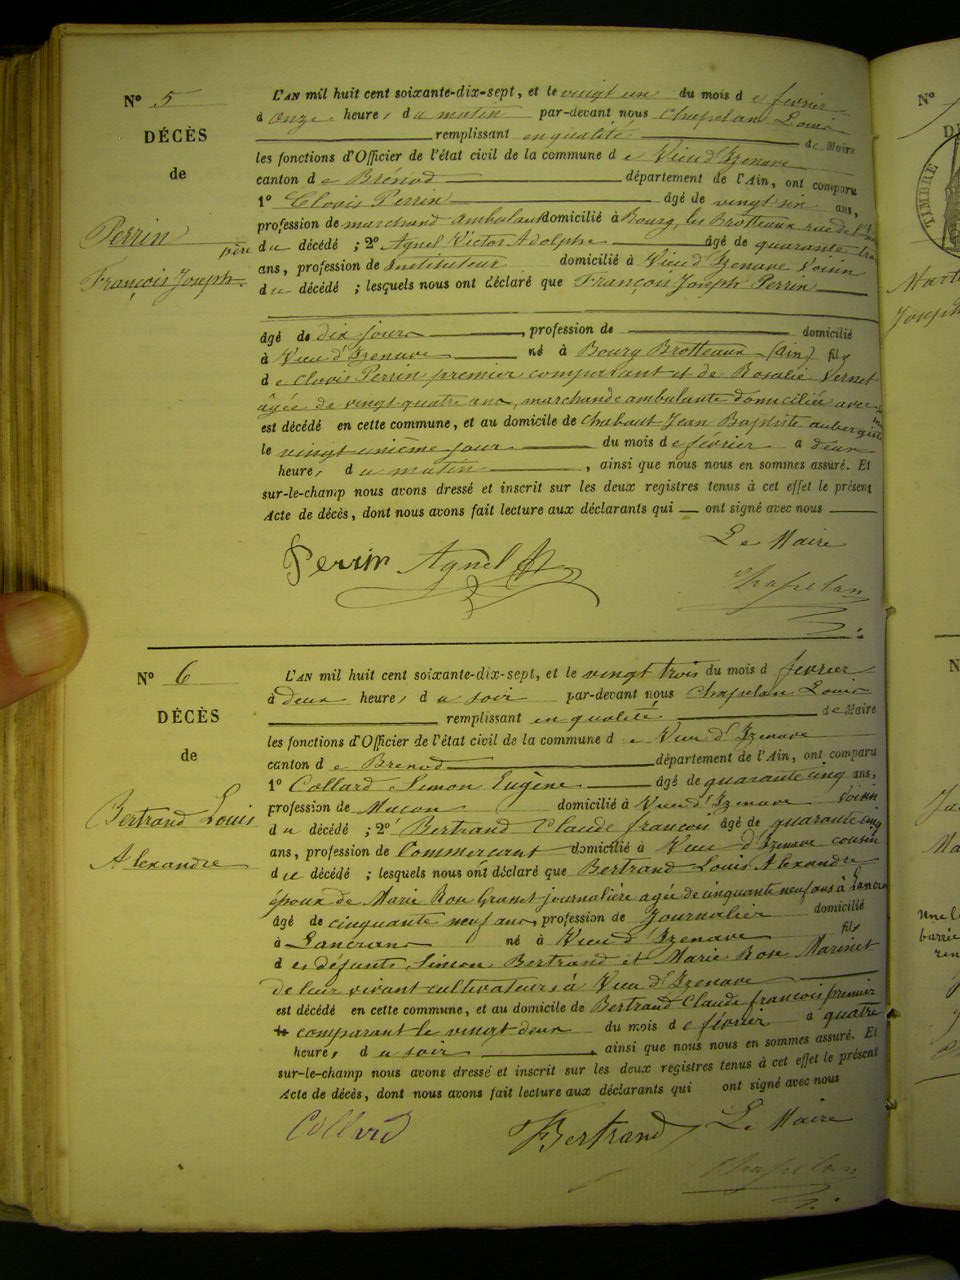 N° 5
DÉCÈS
de
Perrin
François Joseph
L'AN mil huit cent soixante-dix-sept, et le vingt un du mois d e février
à onze heure, d u matin par-devant nous Chapelan Louis
remplissant en qualité de Maire
les fonctions d'Officier de l'état civil de la commune d e Vieu d'Izenave
canton d e Brénod département de l'Ain, ont comparu
1° Clovis Perrin âgé de vingt six ans,
profession de marchand ambulant domicilié à Bourg, les Brotteaux rue de
père du décédé ; 2° Agnel Victor Adolphe âgé de quarante trois
ans, profession de Instituteur domicilié à Vieu d'Izenave Voisin
du décédé ; lesquels nous ont déclaré que François Joseph Perrin
âgé de dix jours, profession de domicilié
à Vieu d'Izenave né à Bourg Brotteaux (Ain) fils
d e Clovis Perrin premier comparant et de Rosalie Vernet
âgée de vingt quatre ans, marchande ambulante domiciliée avec
est décédé en cette commune, et au domicile de Chabaut Jean Baptiste aubergiste
le vingt unième jour du mois d e février à deux
heure, d u matin, ainsi que nous nous en sommes assuré. Et
sur-le-champ nous avons dressé et inscrit sur les deux registres tenus à cet effet le présent
Acte de décès, dont nous avons fait lecture aux déclarants qui ont signé avec nous
Le Maire
Perrin Agnel Chapelan
N° 6
DÉCÈS
de
Bertrand Louis
Alexandre
L'AN mil huit cent soixante-dix-sept, et le vingt trois du mois d février
à deux heure, d u soir par-devant nous Chapelan Louis
remplissant en qualité de Maire
les fonctions d'Officier de l'état civil de la commune d e Vieu d'Izenave
canton d e Brenod département de l'Ain, ont comparu
1° Collard Simon Eugène âgé de quarante cinq ans,
profession de Maçon domicilié à Vieu d'Izenave Voisin
du décédé ; 2° Bertrand Claude françois âgé de quarante cinq
ans, profession de Commerçant domicilié à Vieu d'Izenave cousin
du décédé ; lesquels nous ont déclaré que Bertrand Louis Alexandre
époux de Marie Rose Granet journalière agée de cinquante neuf ans à Lancrans
âgé de cinquante neuf ans, profession de Journalier domicilié
à Lancrans né à Vieu d'Izenave fils
d es défunts Simon Bertrand et Marie Rose Marinet
de leur vivant cultivateurs à Vieu d'Izenave
est décédé en cette commune, et au domicile de Bertrand Claude françois premier
le comparant le vingt deux du mois d e février à quatre
heure, d u soir, ainsi que nous nous en sommes assuré. Et
sur-le-champ nous avons dressé et inscrit sur les deux registres tenus à cet effet le présent
Acte de décès, dont nous avons fait lecture aux déclarants qui ont signé avec nous
Le Maire
Collard Bertrand
Chapelan
N°
TIMBRE